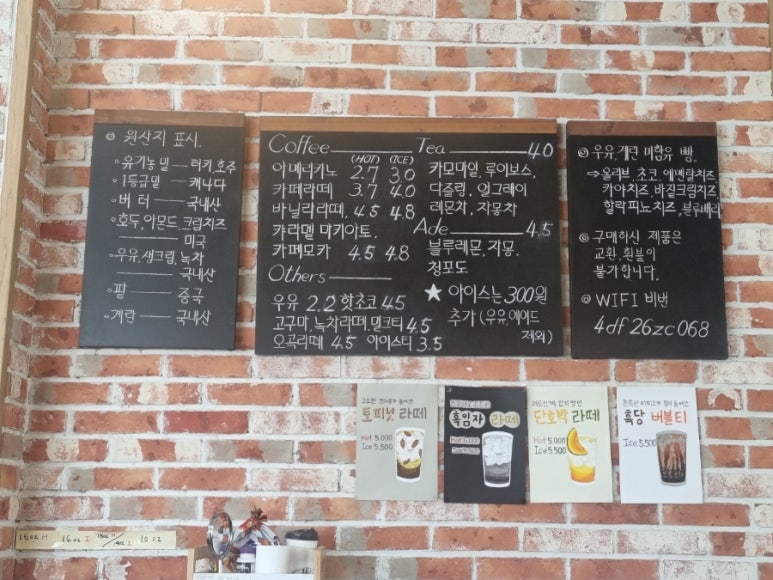 원산지 표시.
유기농밀 — 터키, 호주
1등급밀 — 캐나다
버터 — 국내산
호두, 아몬드, 크림치즈
— 미국
우유, 생크림, 녹차
— 국내산
팥 — 중국
계란 — 국내산
Coffee
(HOT) (ICE)
아메리카노 2.7 3.0
카페라떼 3.7 4.0
바닐라라떼, 4.5 4.8
카라멜 마키아토,
카페모카 4.5 4.8
Others
우유 2.2 핫초코 4.5
고구마, 녹차라떼, 밀크티 4.5
오곡라떼 4.5 아이스티 3.5
Tea 4.0
카모마일, 루이보스,
다즐링, 얼그레이
레몬차, 자몽차
Ade 4.5
블루레몬, 자몽,
청포도
★ 아이스는 300원
추가 (우유, 에이드
제외)
우유, 계란 미함유 빵.
⇒ 올리브, 초코, 에멘탈치즈
카야치즈, 바질크림치즈
할라피노치즈, 블루베리
구매하신 제품은
교환, 환불이
불가합니다.
WIFI 비번
4df26zc068
토피넛 라떼
Hot 5,000
Ice 5,500
흑임자 라떼
Hot 5,000
Ice 5,500
단호박 라떼
Hot 5,000
Ice 5,500
흑당 버블티
Ice 5,500
16oz H 16oz I 10oz